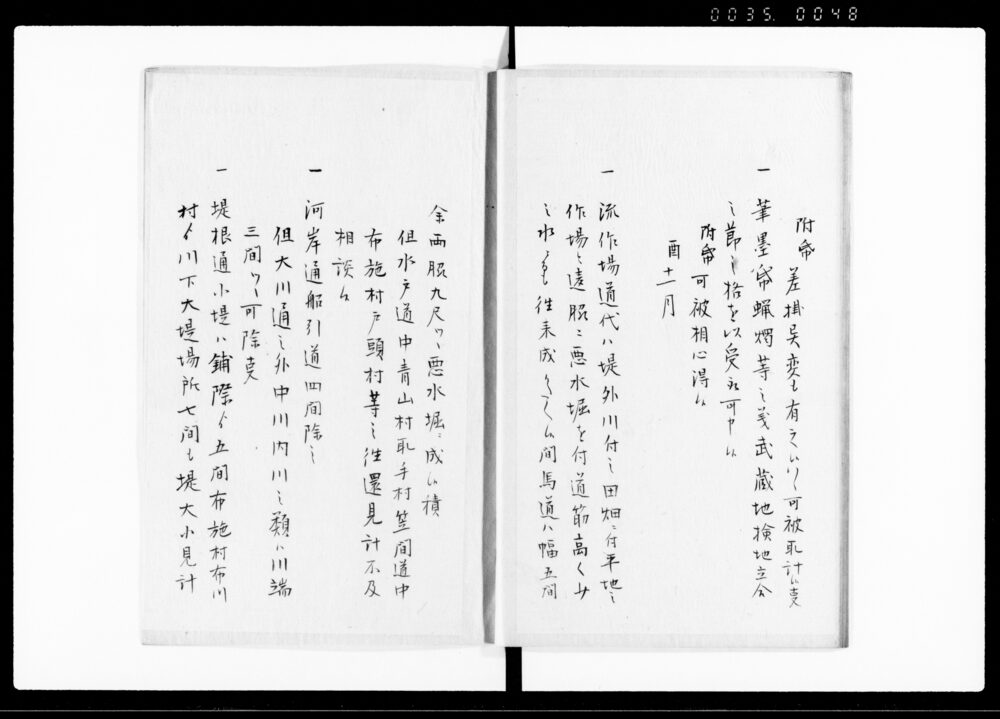 0035. 0048
附帋 差掛呉変も有之候ハヽ可被取計候事
一 筆墨帋蝋燭等之義武蔵地検地立合
之節之格を以受取可申候
附帋 可被相心得候
酉十一月
一 流作場道代ハ堤外川付之田畑ニ付平地之
作場と違脇ニ悪水堀を付道筋高く
之水ニも往来成候間馬道ハ幅五間
余両脇九尺ツヽ悪水堀ニ成候積
但水戸道中青山村取手村笠間道中
布施村戸頭村等之往還見計不及
相談候
一 河岸通船引道四間除之
但大川通之外中川内川之類ハ川端
三間ツヽ可除事
一 堤根通小堤ハ鋪際ゟ五間布施村布川
村ゟ川下大堤場所七間も堤大小見計